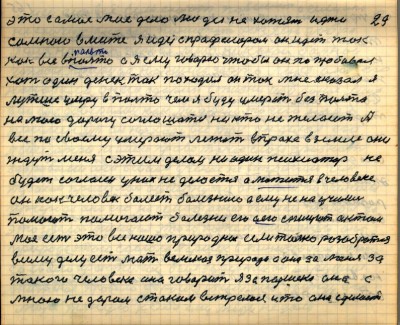 это самое мое дело люди не хотят идти 29
со мною вместе Я идет с профессором он идет так
как все в польта а я ему говорю чтобы он по пробовал
хотя один денек так походил он так мне сказал я
лутше умру в полто чем я буду умирать без полта
на мою дорогу соглошати никто не желает А
все по своему умирают лежат в прахе в земле они
ждут меня с этим делом ни один психиатор не
будет согласи у них не делостся а мотится в человеке
он как человек болеет болезнию а ему не научили
помогат помогают болезни его
мое есть это все нашо природное если только розобратся
в ему делу есть мать великая природа она за меня за
такого человека она говорит я за паршека она с
мною не даром с таким встрелося и что она сделает